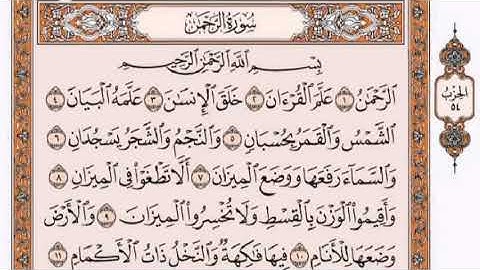 سُورَةُ الرَّحْمَٰن
بِسْمِ اللَّهِ الرَّحْمَٰنِ الرَّحِيمِ
الرَّحْمَٰنُ ١ عَلَّمَ الْقُرْءَانَ ٢ خَلَقَ الْإِنسَٰنَ ٣ عَلَّمَهُ الْبَيَانَ ٤
الشَّمْسُ وَالْقَمَرُ بِحُسْبَانٍ ٥ وَالنَّجْمُ وَالشَّجَرُ يَسْجُدَانِ ٦
وَالسَّمَاءَ رَفَعَهَا وَوَضَعَ الْمِيزَانَ ٧ أَلَّا تَطْغَوْا فِي الْمِيزَانِ ٨
وَأَقِيمُوا الْوَزْنَ بِالْقِسْطِ وَلَا تُخْسِرُوا الْمِيزَانَ ٩ وَالْأَرْضَ
وَضَعَهَا لِلْأَنَامِ ١٠ فِيهَا فَٰكِهَةٌ وَالنَّخْلُ ذَاتُ الْأَكْمَامِ ١١
الحِزْبُ
٥٤